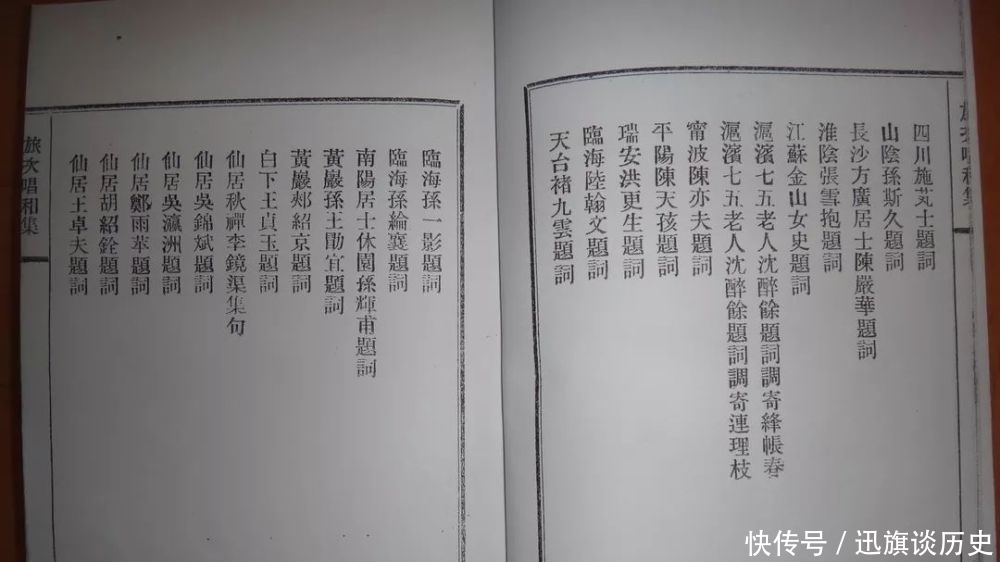 旅次唱和集
四川施芄士題詞
山陰孫斯久題詞
長沙方廣居士陳嚴華題詞
淮陰張雪抱題詞
江蘇金山女史題詞
滬濱七五老人沈醉餘題詞調寄絳帳春
滬濱七五老人沈醉餘題詞調寄連理枝
甯波陳亦夫題詞
平陽陳天孩題詞
瑞安洪更生題詞
臨海陸翰文題詞
天台褚九雲題詞
臨海孫一影題詞
臨海孫綸襄題詞
南陽居士休園孫輝甫題詞
黃巖孫王勛宜題詞
黃巖郟紹京題詞
白下王貞玉題詞
仙居秋禪李鏡渠集句
仙居吳錦斌題詞
仙居吳瀛洲題詞
仙居鄭雨華題詞
仙居胡紹銓題詞
仙居王卓夫題詞
旅次唱和集
快传号 / 迅旗谈历史